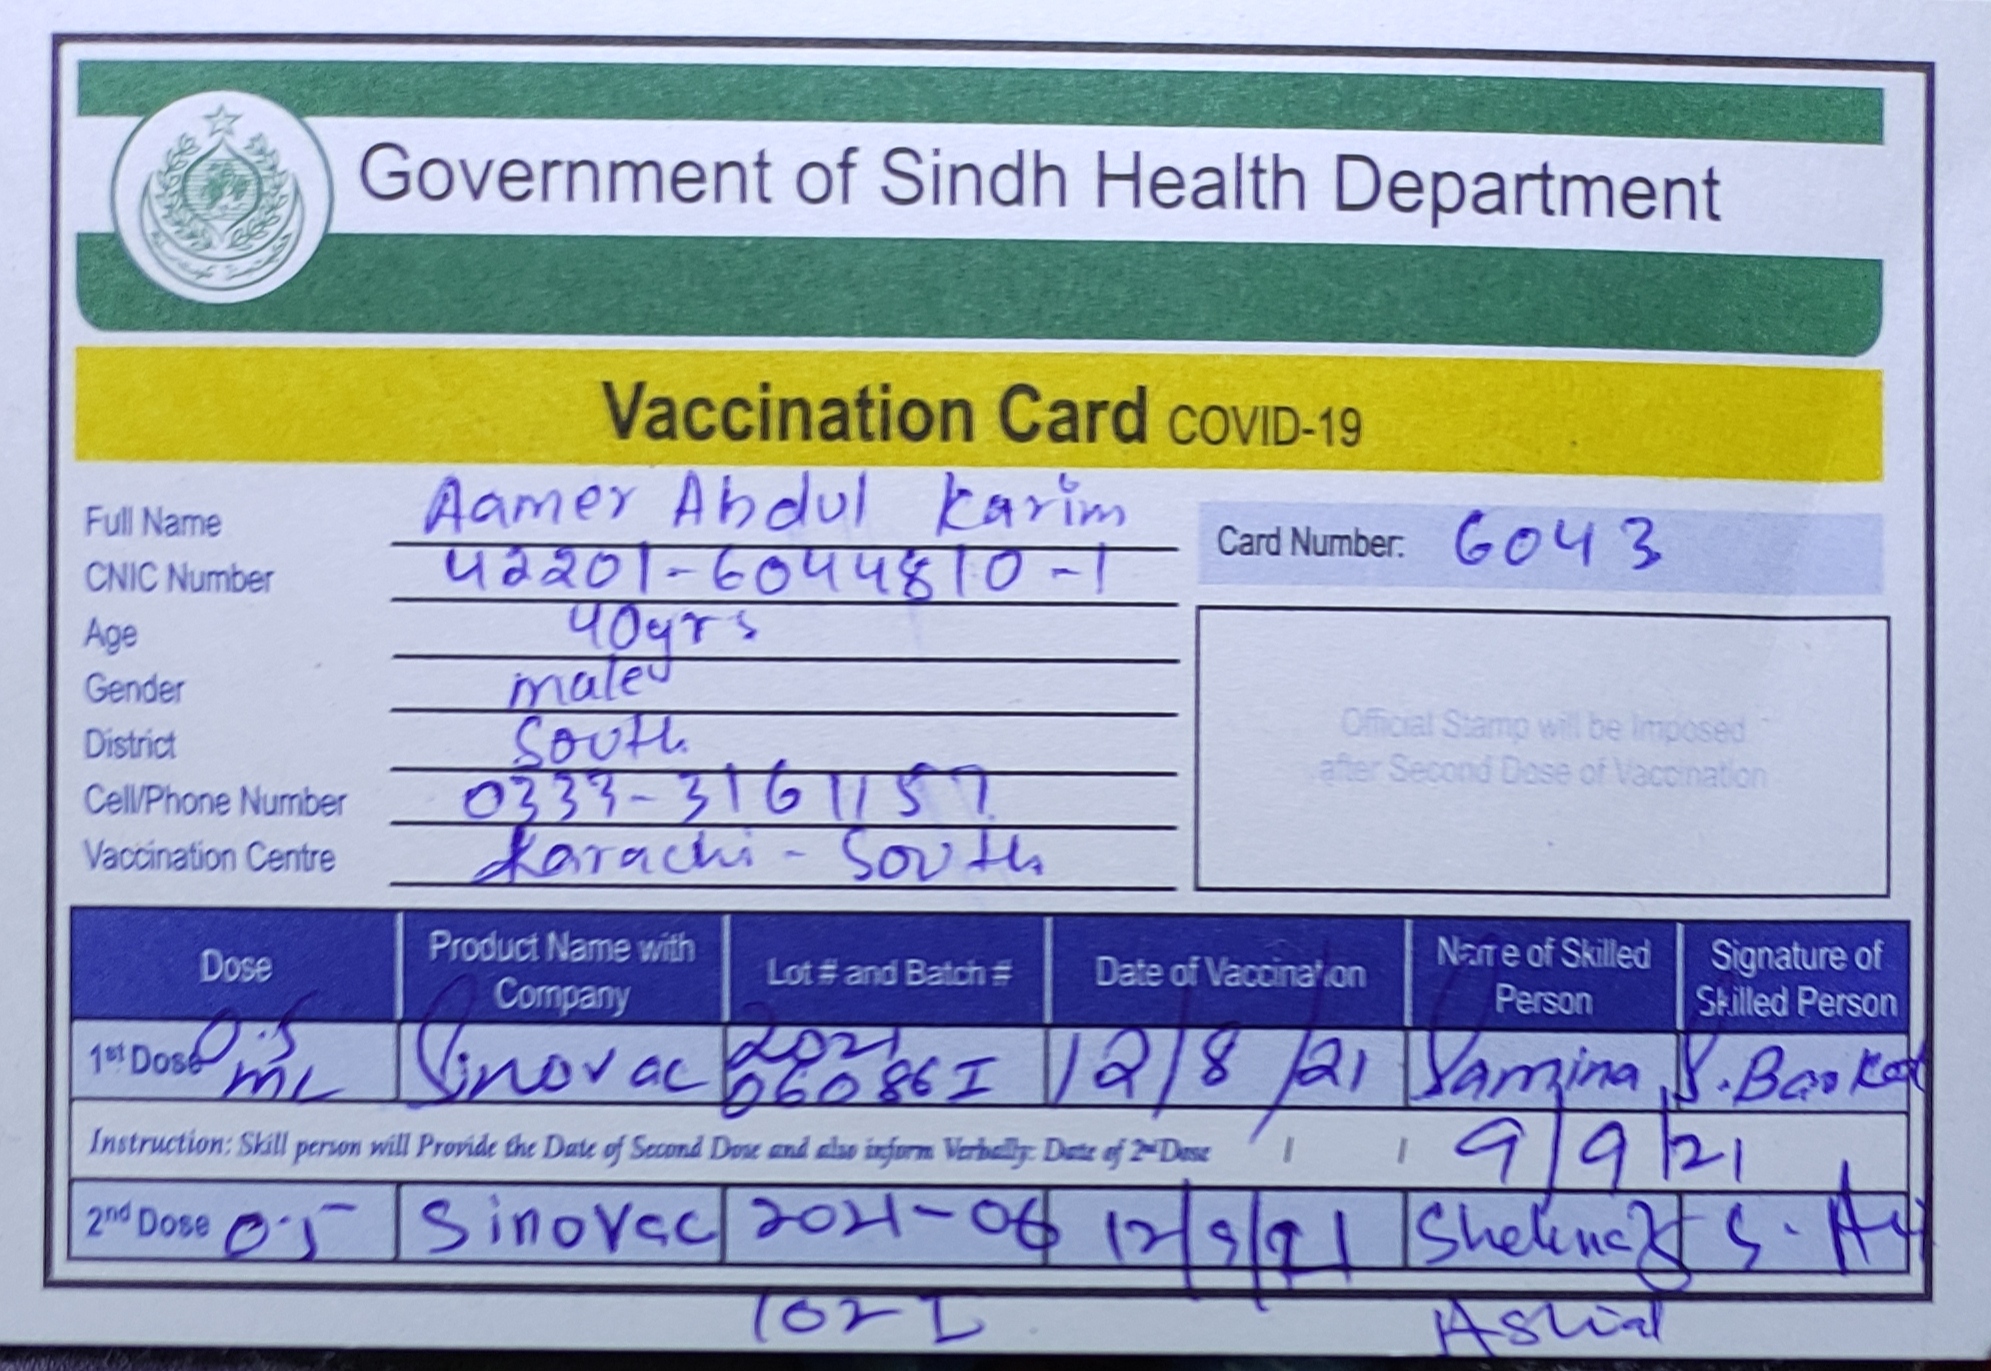 Government of Sindh Health Department
Vaccination Card COVID-19
Full Name Aamer Abdul Karim
CNIC Number 42201-6044810-1
Age 40yrs
Gender male
District South
Cell/Phone Number 0333-3161157
Vaccination Centre Karachi - South
Card Number: 6043
Official Stamp will be Imposed
after Second Dose of Vaccination
Dose Product Name with Company Lot # and Batch # Date of Vaccination Name of Skilled Person Signature of Skilled Person
1st Dose 0.5 ML Sinovac 2021 06086I 12/8/21 Yamina S.
Instruction: Skill person will Provide the Date of Second Dose and also inform Verbally: Date of 2nd Dose / / 9/9/21
2nd Dose 0.5 Sinovac 2021-06 12/9/21 S.
102 I